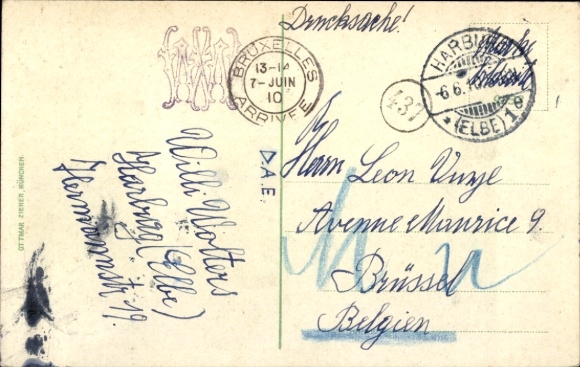 Drucksache!
Marke
BRUXELLES
13-14
7-JUIN
10
ARRIVEE
HARBURG
6.6.10
*(ELBE)1e
431
D.A.E.
Herrn Leon
Avenue Maurice 9.
Brüssel
Belgien
Willi Wolters
Harburg (Elbe)
Hermannstr. 19
OTTMAR ZIEHER, MÜNCHEN.